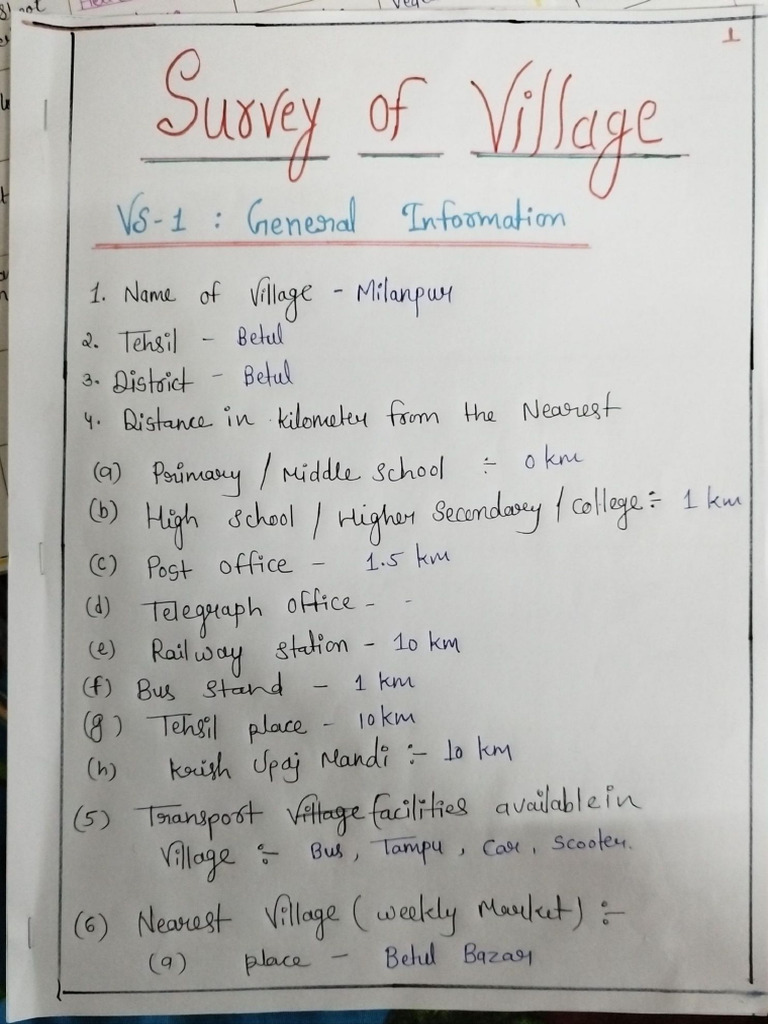 1
Survey of Village
VS-1 : General Information
1. Name of Village - Milanpur
2. Tehsil - Betul
3. District - Betul
4. Distance in kilometer from the Nearest
(a) Primary / Middle School ÷ 0 km
(b) High School / Higher Secondary / College ÷ 1 km
(c) Post office - 1.5 km
(d) Telegraph office - -
(e) Railway station - 10 km
(f) Bus Stand - 1 km
(g) Tehsil place - 10 km
(h) Krish Upaj Mandi :- 10 km
(5) Transport Village facilities available in
Village :- Bus, Tampu, Car, Scooter.
(6) Nearest Village (weekly Market) :-
(a) place - Betul Bazar